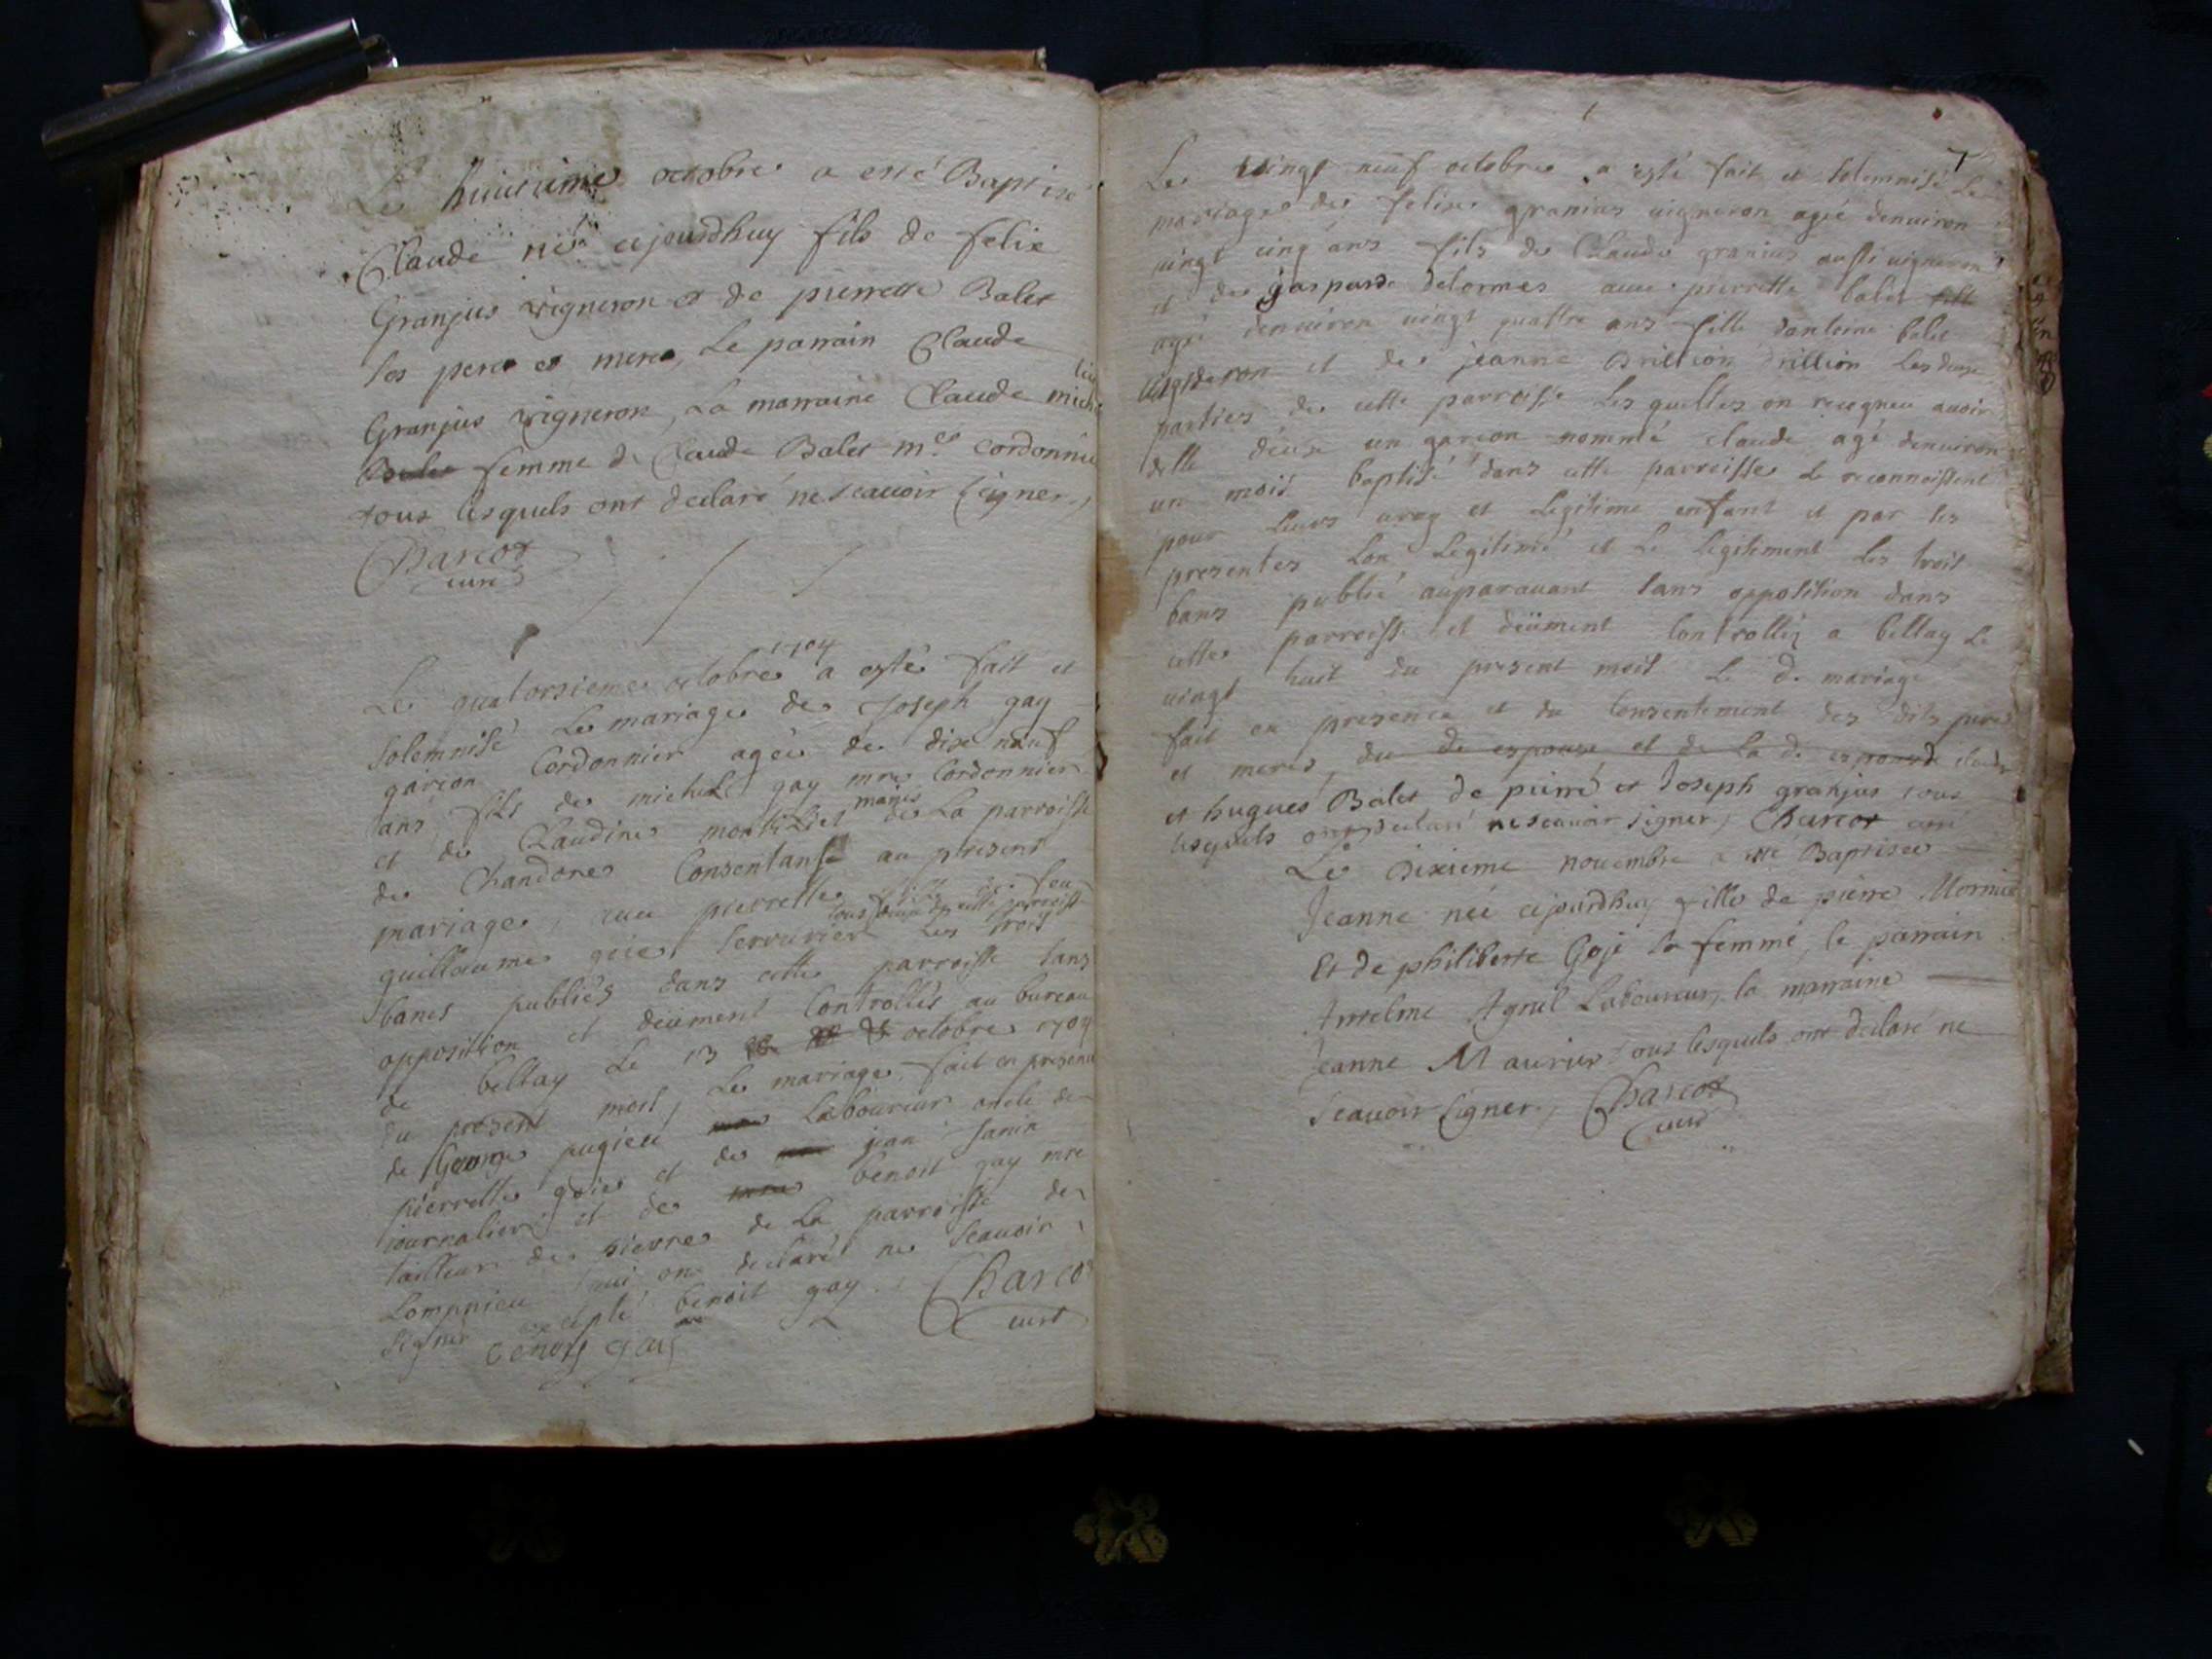 Le huictieme octobre a esté Baptisé
Claude né cejourdhuy fils de felix
Granjus vigneron et de pierrette Balet
ses pere et mere, Le parrain Claude
Granjus vigneron, La marraine Claude
Balet femme de Claude Balet m.e cordonnie
tous lesquels ont declaré ne scauoir signer,
Charcot
curé
1704
Le quatorsieme octobre a esté fait et
solemnisé Le mariage de Joseph gay
garcon Cordonnier agée de dix neuf
ans fils de michel gay mre Cordonnier
mariés
et de Claudine de La parroisse
de Chandore Consentans au present
mariage, auec pierrette fille de feu
tous deux de cette parroisse
guillaume goie serrurier Les trois
bancs publiés dans cette parroisse sans
opposition et deument Controllés au bureau
de bellay Le 13 octobre 1704
du present mois, Le mariage fait en presence
de George pugieu Laboureur oncle de
pierrette goie et de jean Janin
journalier et de benoit gay mre
tailleur de pierre de La parroisse de
Lompnieu qui on declaré ne scauoir
signer excepté benoit gay. Charcot
benoit gay curé
7
Le vingt neuf octobre a esté fait et solemnisé Le
mariage de felix granius uigneron agé denuiron
uingt cinq ans fils de Claude granius aussi uigneron
et de gasparde delormes auec pierrette balet fille
agé denuiron uingt quattre ans fille dantoine balet
uigneron et de jeanne drillion Les deux
parties de cette parroisse Lesquelles on recogneu auoir
delle deux un garcon nommé claude agé denuiron
un mois baptisé dans cette parroisse Le reconnoissent
pour Leurs uray et Legitime enfant et par les
presentes Lon Legitimé et Le legitiment Les trois
bans publié auparauant sans opposition dans
cette parroisse et deüment Controllez a bellay Le
uingt huit du present mois Le d. mariage
fait en presence et du Consentement des dits peres
et meres, du de espoux et de La d. espouse de claude
et hugues Balet de pierre et Joseph granjus tous
lesquels ont declaré ne scauoir signer, Charcot curé
Le Dixieme nouembre a esté Baptisée
Jeanne née cejourdhuy fille de pierre
Et de philiberte Goje sa femme, le parrain
Antelme Agniel Laboureur, la marraine
Jeanne Maurier tous lesquels ont declaré ne
scauoir signer, Charcot
curé